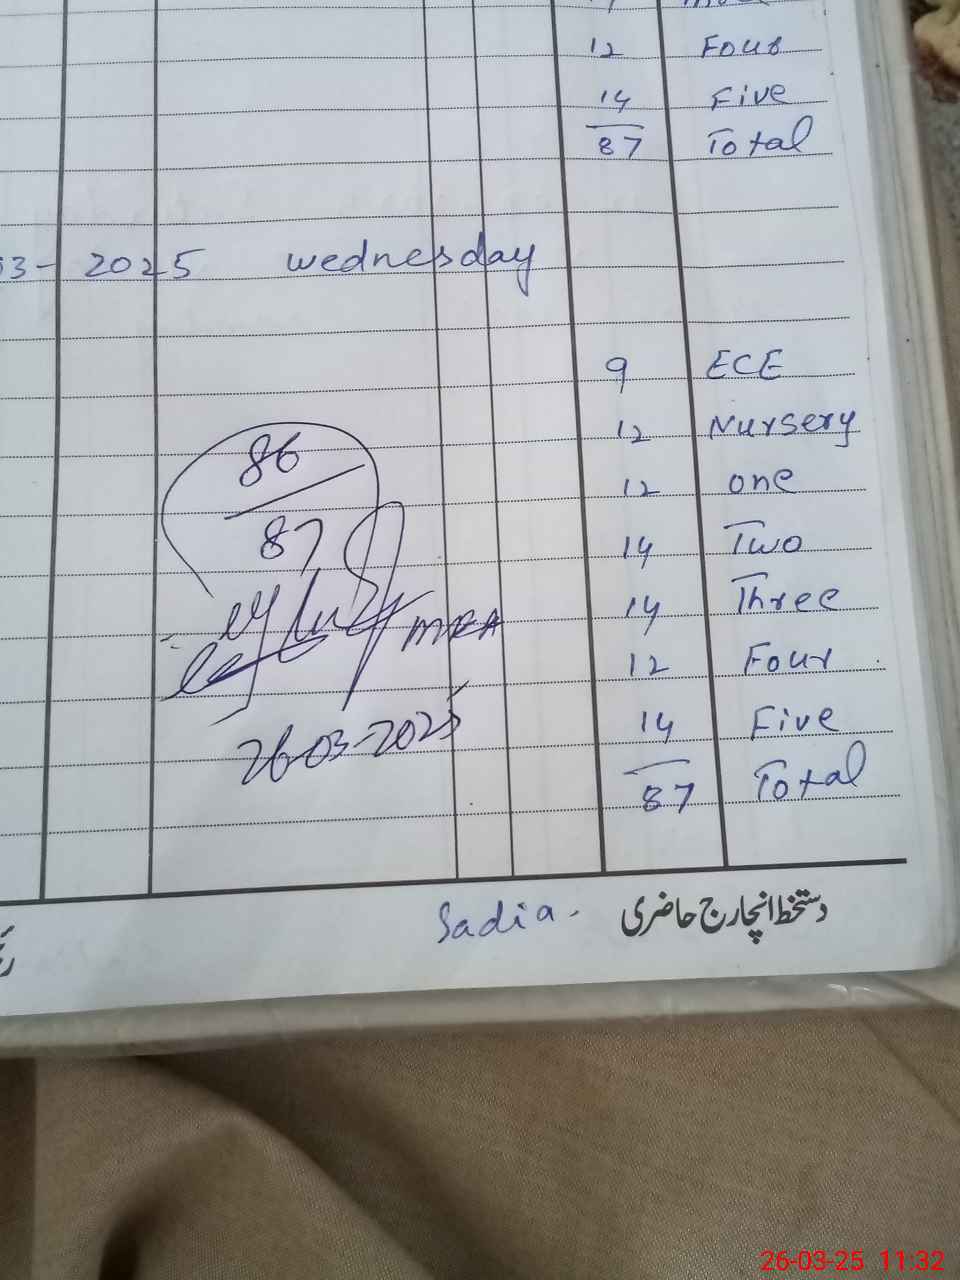 12 Four
14 Five
87 Total
03-2025 wednesday
9 ECE
12 Nursery
12 one
14 Two
14 Three
12 Four
14 Five
87 Total
86
87
MEA
26-03-2025
Sadia.
دستخط انچارج حاضری
26-03-25 11:32